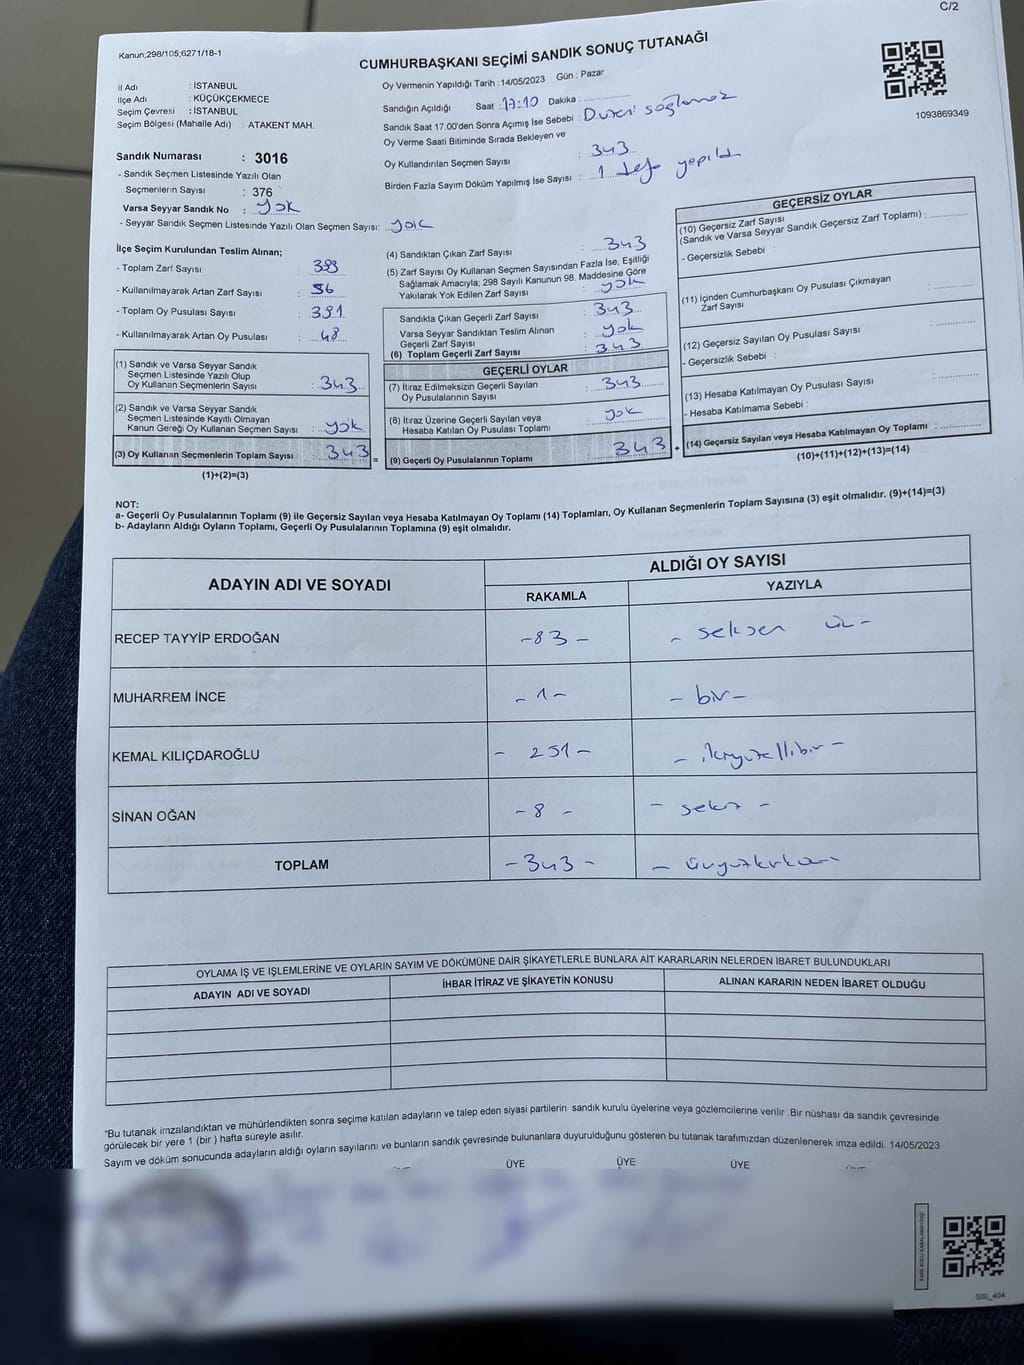 C/2
Kanun;298/105;6271/18-1
CUMHURBAŞKANI SEÇİMİ SANDIK SONUÇ TUTANAĞI
İl Adı : İSTANBUL
İlçe Adı : KÜÇÜKÇEKMECE
Seçim Çevresi : İSTANBUL
Seçim Bölgesi (Mahalle Adı) : ATAKENT MAH.
Oy Vermenin Yapıldığı Tarih : 14/05/2023 Gün : Pazar
Sandığın Açıldığı Saat : 17:10 Dakika :
Sandık Saat 17:00'den Sonra Açımış İse Sebebi :
Oy Verme Saati Bitiminde Sırada Bekleyen ve
Oy Kullandırılan Seçmen Sayısı : 343
Birden Fazla Sayım Döküm Yapılmış İse Sayısı : 1 defa yapıldı
1093869349
Sandık Numarası : 3016
- Sandık Seçmen Listesinde Yazılı Olan
Seçmenlerin Sayısı : 376
Varsa Seyyar Sandık No : yok
- Seyyar Sandık Seçmen Listesinde Yazılı Olan Seçmen Sayısı: yok
İlçe Seçim Kurulundan Teslim Alınan;
- Toplam Zarf Sayısı :
- Kullanılmayarak Artan Zarf Sayısı :
- Toplam Oy Pusulası Sayısı : 391
- Kullanılmayarak Artan Oy Pusulası : 48
(1) Sandık ve Varsa Seyyar Sandık
Seçmen Listesinde Yazılı Olup
Oy Kullanan Seçmenlerin Sayısı : 343
(2) Sandık ve Varsa Seyyar Sandık
Seçmen Listesinde Kayıtlı Olmayan
Kanun Gereği Oy Kullanan Seçmen Sayısı : yok
(3) Oy Kullanan Seçmenlerin Toplam Sayısı : 343
(1)+(2)=(3)
=
(4) Sandıktan Çıkan Zarf Sayısı : 343
(5) Zarf Sayısı Oy Kullanan Seçmen Sayısından Fazla İse, Eşitliği
Sağlamak Amacıyla; 298 Sayılı Kanunun 98. Maddesine Göre
Yakılarak Yok Edilen Zarf Sayısı : yok
Sandıkta Çıkan Geçerli Zarf Sayısı : 343
Varsa Seyyar Sandıktan Teslim Alınan
Geçerli Zarf Sayısı : yok
(6) Toplam Geçerli Zarf Sayısı : 343
GEÇERLİ OYLAR
(7) İtiraz Edilmeksizin Geçerli Sayılan
Oy Pusulalarının Sayısı : 343
(8) İtiraz Üzerine Geçerli Sayılan veya
Hesaba Katılan Oy Pusulası Toplamı : yok
(9) Geçerli Oy Pusulalarının Toplamı : 343
+
GEÇERSİZ OYLAR
(10) Geçersiz Zarf Sayısı
(Sandık ve Varsa Seyyar Sandık Geçersiz Zarf Toplamı) :
- Geçersizlik Sebebi :
(11) İçinden Cumhurbaşkanı Oy Pusulası Çıkmayan
Zarf Sayısı :
(12) Geçersiz Sayılan Oy Pusulası Sayısı :
- Geçersizlik Sebebi :
(13) Hesaba Katılmayan Oy Pusulası Sayısı :
- Hesaba Katılmama Sebebi :
(14) Geçersiz Sayılan veya Hesaba Katılmayan Oy Toplamı :
(10)+(11)+(12)+(13)=(14)
NOT:
a- Geçerli Oy Pusulalarının Toplamı (9) ile Geçersiz Sayılan veya Hesaba Katılmayan Oy Toplamı (14) Toplamları, Oy Kullanan Seçmenlerin Toplam Sayısına (3) eşit olmalıdır. (9)+(14)=(3)
b- Adayların Aldığı Oyların Toplamı, Geçerli Oy Pusulalarının Toplamına (9) eşit olmalıdır.
ADAYIN ADI VE SOYADI ALDIĞI OY SAYISI
RAKAMLA YAZIYLA
RECEP TAYYİP ERDOĞAN -83- - seksen üç -
MUHARREM İNCE -1- - bir -
KEMAL KILIÇDAROĞLU - 251 - - ikiyüzellibir -
SİNAN OĞAN - 8 - - sekiz -
TOPLAM -343- -
OYLAMA İŞ VE İŞLEMLERİNE VE OYLARIN SAYIM VE DÖKÜMÜNE DAİR ŞİKAYETLERLE BUNLARA AİT KARARLARIN NELERDEN İBARET BULUNDUKLARI
ADAYIN ADI VE SOYADI İHBAR İTİRAZ VE ŞİKAYETİN KONUSU ALINAN KARARIN NEDEN İBARET OLDUĞU
*Bu tutanak imzalandıktan ve mühürlendikten sonra seçime katılan adayların ve talep eden siyasi partilerin sandık kurulu üyelerine veya gözlemcilerine verilir .Bir nüshası da sandık çevresinde
görülecek bir yere 1 (bir ) hafta süreyle asılır.
Sayım ve döküm sonucunda adayların aldığı oyların sayılarını ve bunların sandık çevresinde bulunanlara duyurulduğunu gösteren bu tutanak tarafımızdan düzenlenerek imza edildi. 14/05/2023
ÜYE ÜYE ÜYE
SSI_404